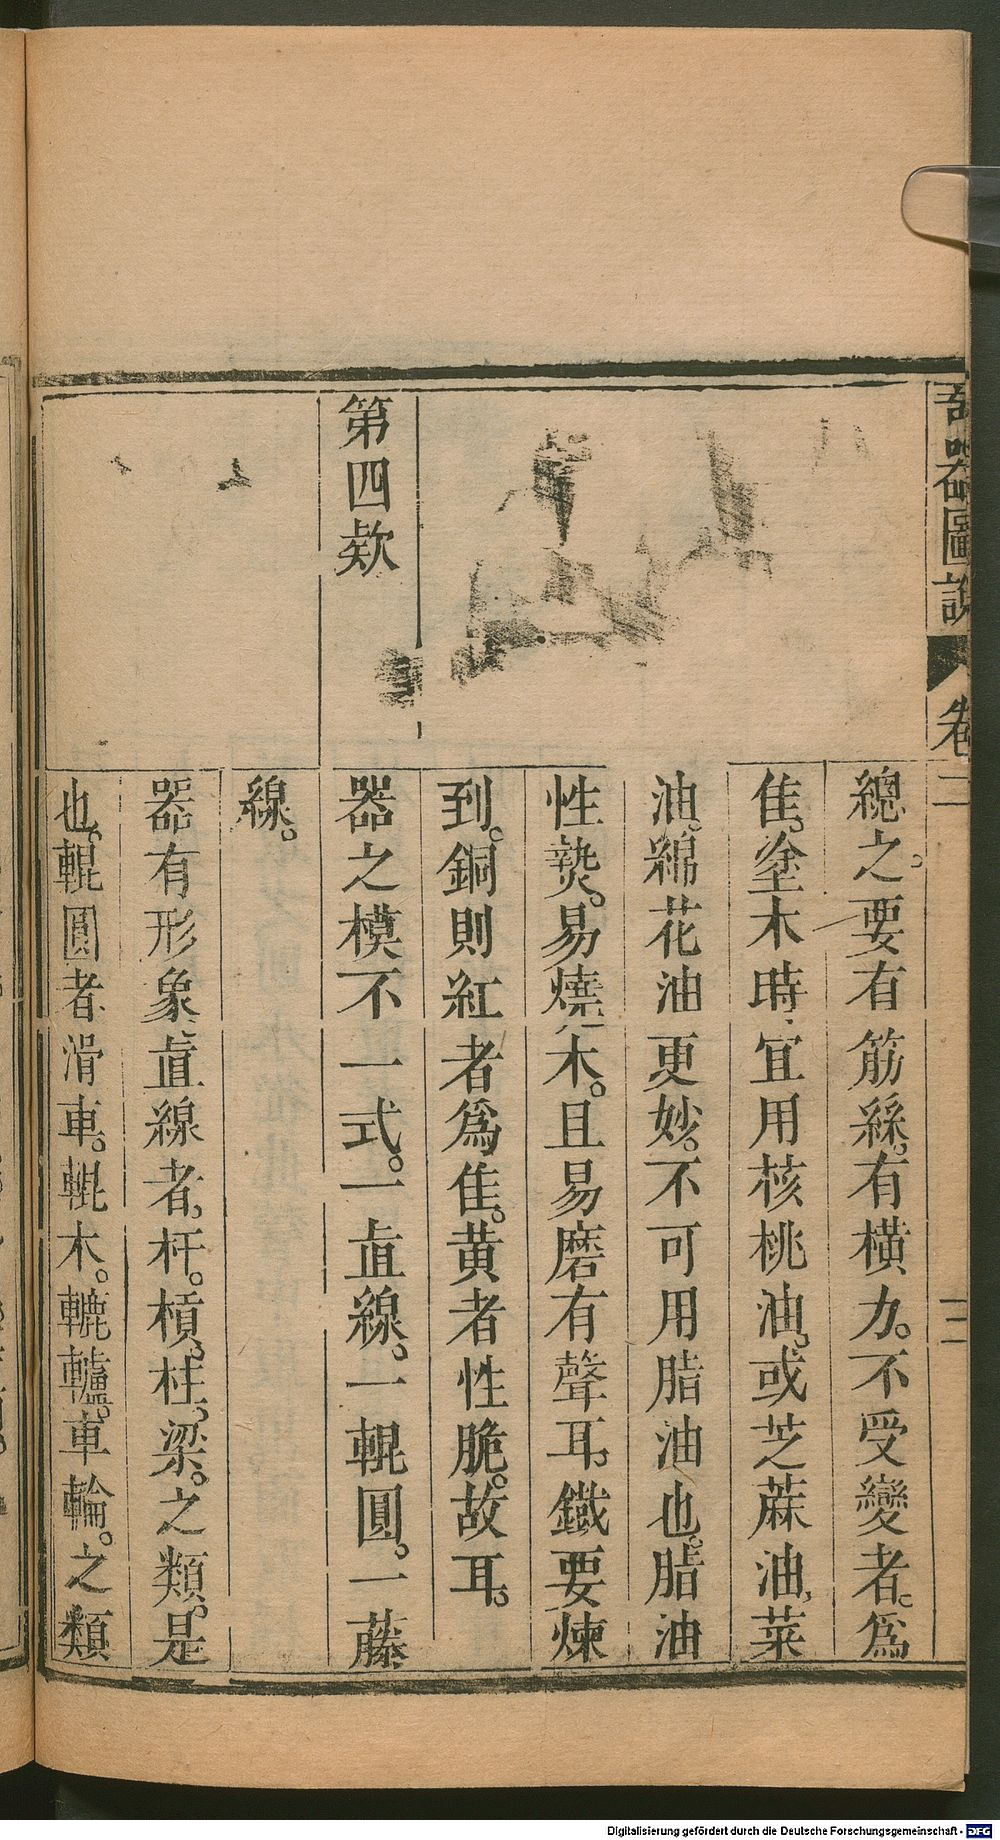 奇器圖說 卷二 三
總之。要有筋絲。有橫力。不受變者。爲
佳。塗木時宜用核桃油。或芝蔴油。菜
油。綿花油更妙。不可用脂油也。脂油
性𤍠。易燒木。且易磨有聲耳。鐵要煉
到。銅則紅者爲佳。黄者性脆。故耳。
第四欵
器之模不一式。一直線。一輥圓。一藤
線。
器有形象直線者，杆。槓，柱，梁。之類。是
也。輥圓者滑車。輥木。轆轤。車輪。之類
Digitalisierung gefördert durch die Deutsche Forschungsgemeinschaft - DFG